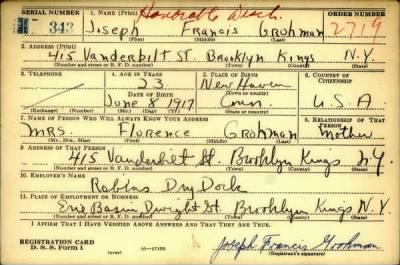 SERIAL NUMBER 1. NAME (Print) Honorable Disch. ORDER NUMBER
343 Joseph Francis Grohman 2719
(First) (Middle) (Last)
2. ADDRESS (Print)
415 Vanderbilt St. Brooklyn Kings N.Y.
(Number and street or R. F. D. number) (Town) (County) (State)
3. TELEPHONE 4. AGE IN YEARS 5. PLACE OF BIRTH 6. COUNTRY OF CITIZENSHIP
23 New Haven
(Town or county)
DATE OF BIRTH
June 8 1917 Conn. U.S.A
(Exchange) (Number) (Mo.) (Day) (Yr.) (State or country)
7. NAME OF PERSON WHO WILL ALWAYS KNOW YOUR ADDRESS 8. RELATIONSHIP OF THAT PERSON
Mrs. Florence Grohman Mother
(Mr., Mrs., Miss) (First) (Middle) (Last)
9. ADDRESS OF THAT PERSON
415 Vanderbilt St. Brooklyn Kings N.Y.
(Number and street or R. F. D. number) (Town) (County) (State)
10. EMPLOYER'S NAME
Robbins Dry Dock
11. PLACE OF EMPLOYMENT OR BUSINESS
Erie Basin Dwight St. Brooklyn Kings N.Y.
(Number and street or R. F. D. number) (Town) (County) (State)
I AFFIRM THAT I HAVE VERIFIED ABOVE ANSWERS AND THAT THEY ARE TRUE.
REGISTRATION CARD
D. S. S. Form 1 (over) 16-17105 Joseph Francis Grohman
(Registrant's signature)